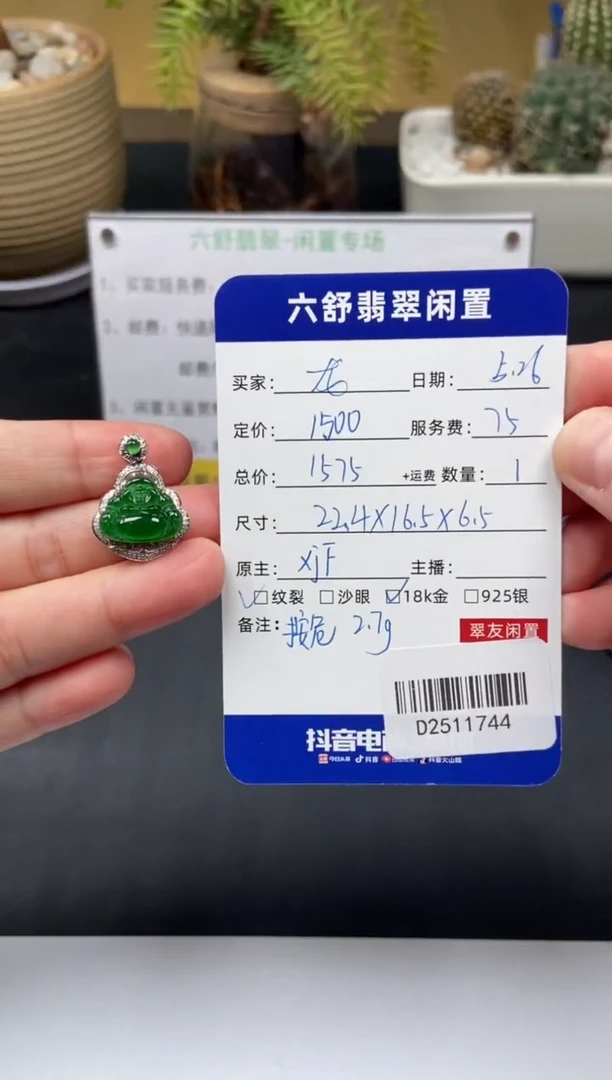 六舒翡翠-闲置专场
1、买家服务费：
2、邮费：快递
邮费
3、闲置
六舒翡翠闲置
买家：龙 日期：5.26
定价：1500 服务费：75
总价：1575 +运费 数量：1
尺寸：22.4X16.5X6.5
原主：xjF 主播：
☑纹裂 □沙眼 ☑18k金 □925银
备注： 2.7g
翠友闲置
D2511744
抖音电
今日头条 抖音 抖音火山版